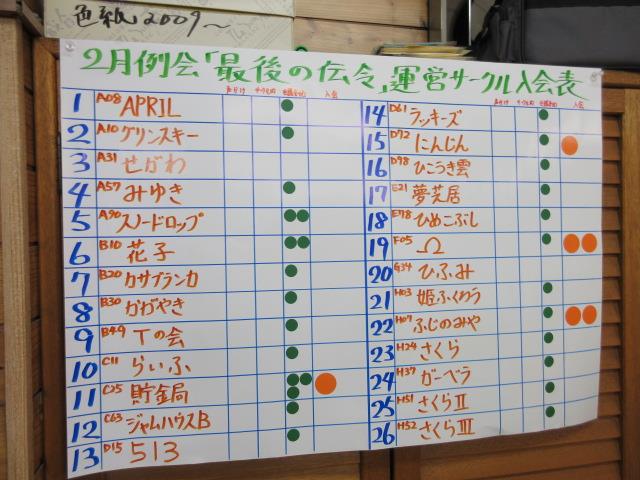 色紙2009～
2月例会「最後の伝令」運営サークル入会表
入会
入会
1 A08 APRIL
2 A10 グリンスキー
3 A31 せがわ
4 A57 みゆき
5 A90 スノードロップ
6 B10 花子
7 B20 カサブランカ
8 B30 かがやき
9 B49 Tの会
10 C11 らいふ
11 C25 貯金局
12 C63 ジャムハウスB
13 D15 513
14 D61 ラッキーズ
15 D72 にんじん
16 D98 ひこうき雲
17 E21 夢芝居
18 E78 ひめこぶし
19 F05 Ω
20 G34 ひふみ
21 H03 姫ふくろう
22 H07 ふじのみや
23 H24 さくら
24 H37 ガーベラ
25 H51 さくらII
26 H52 さくらIII